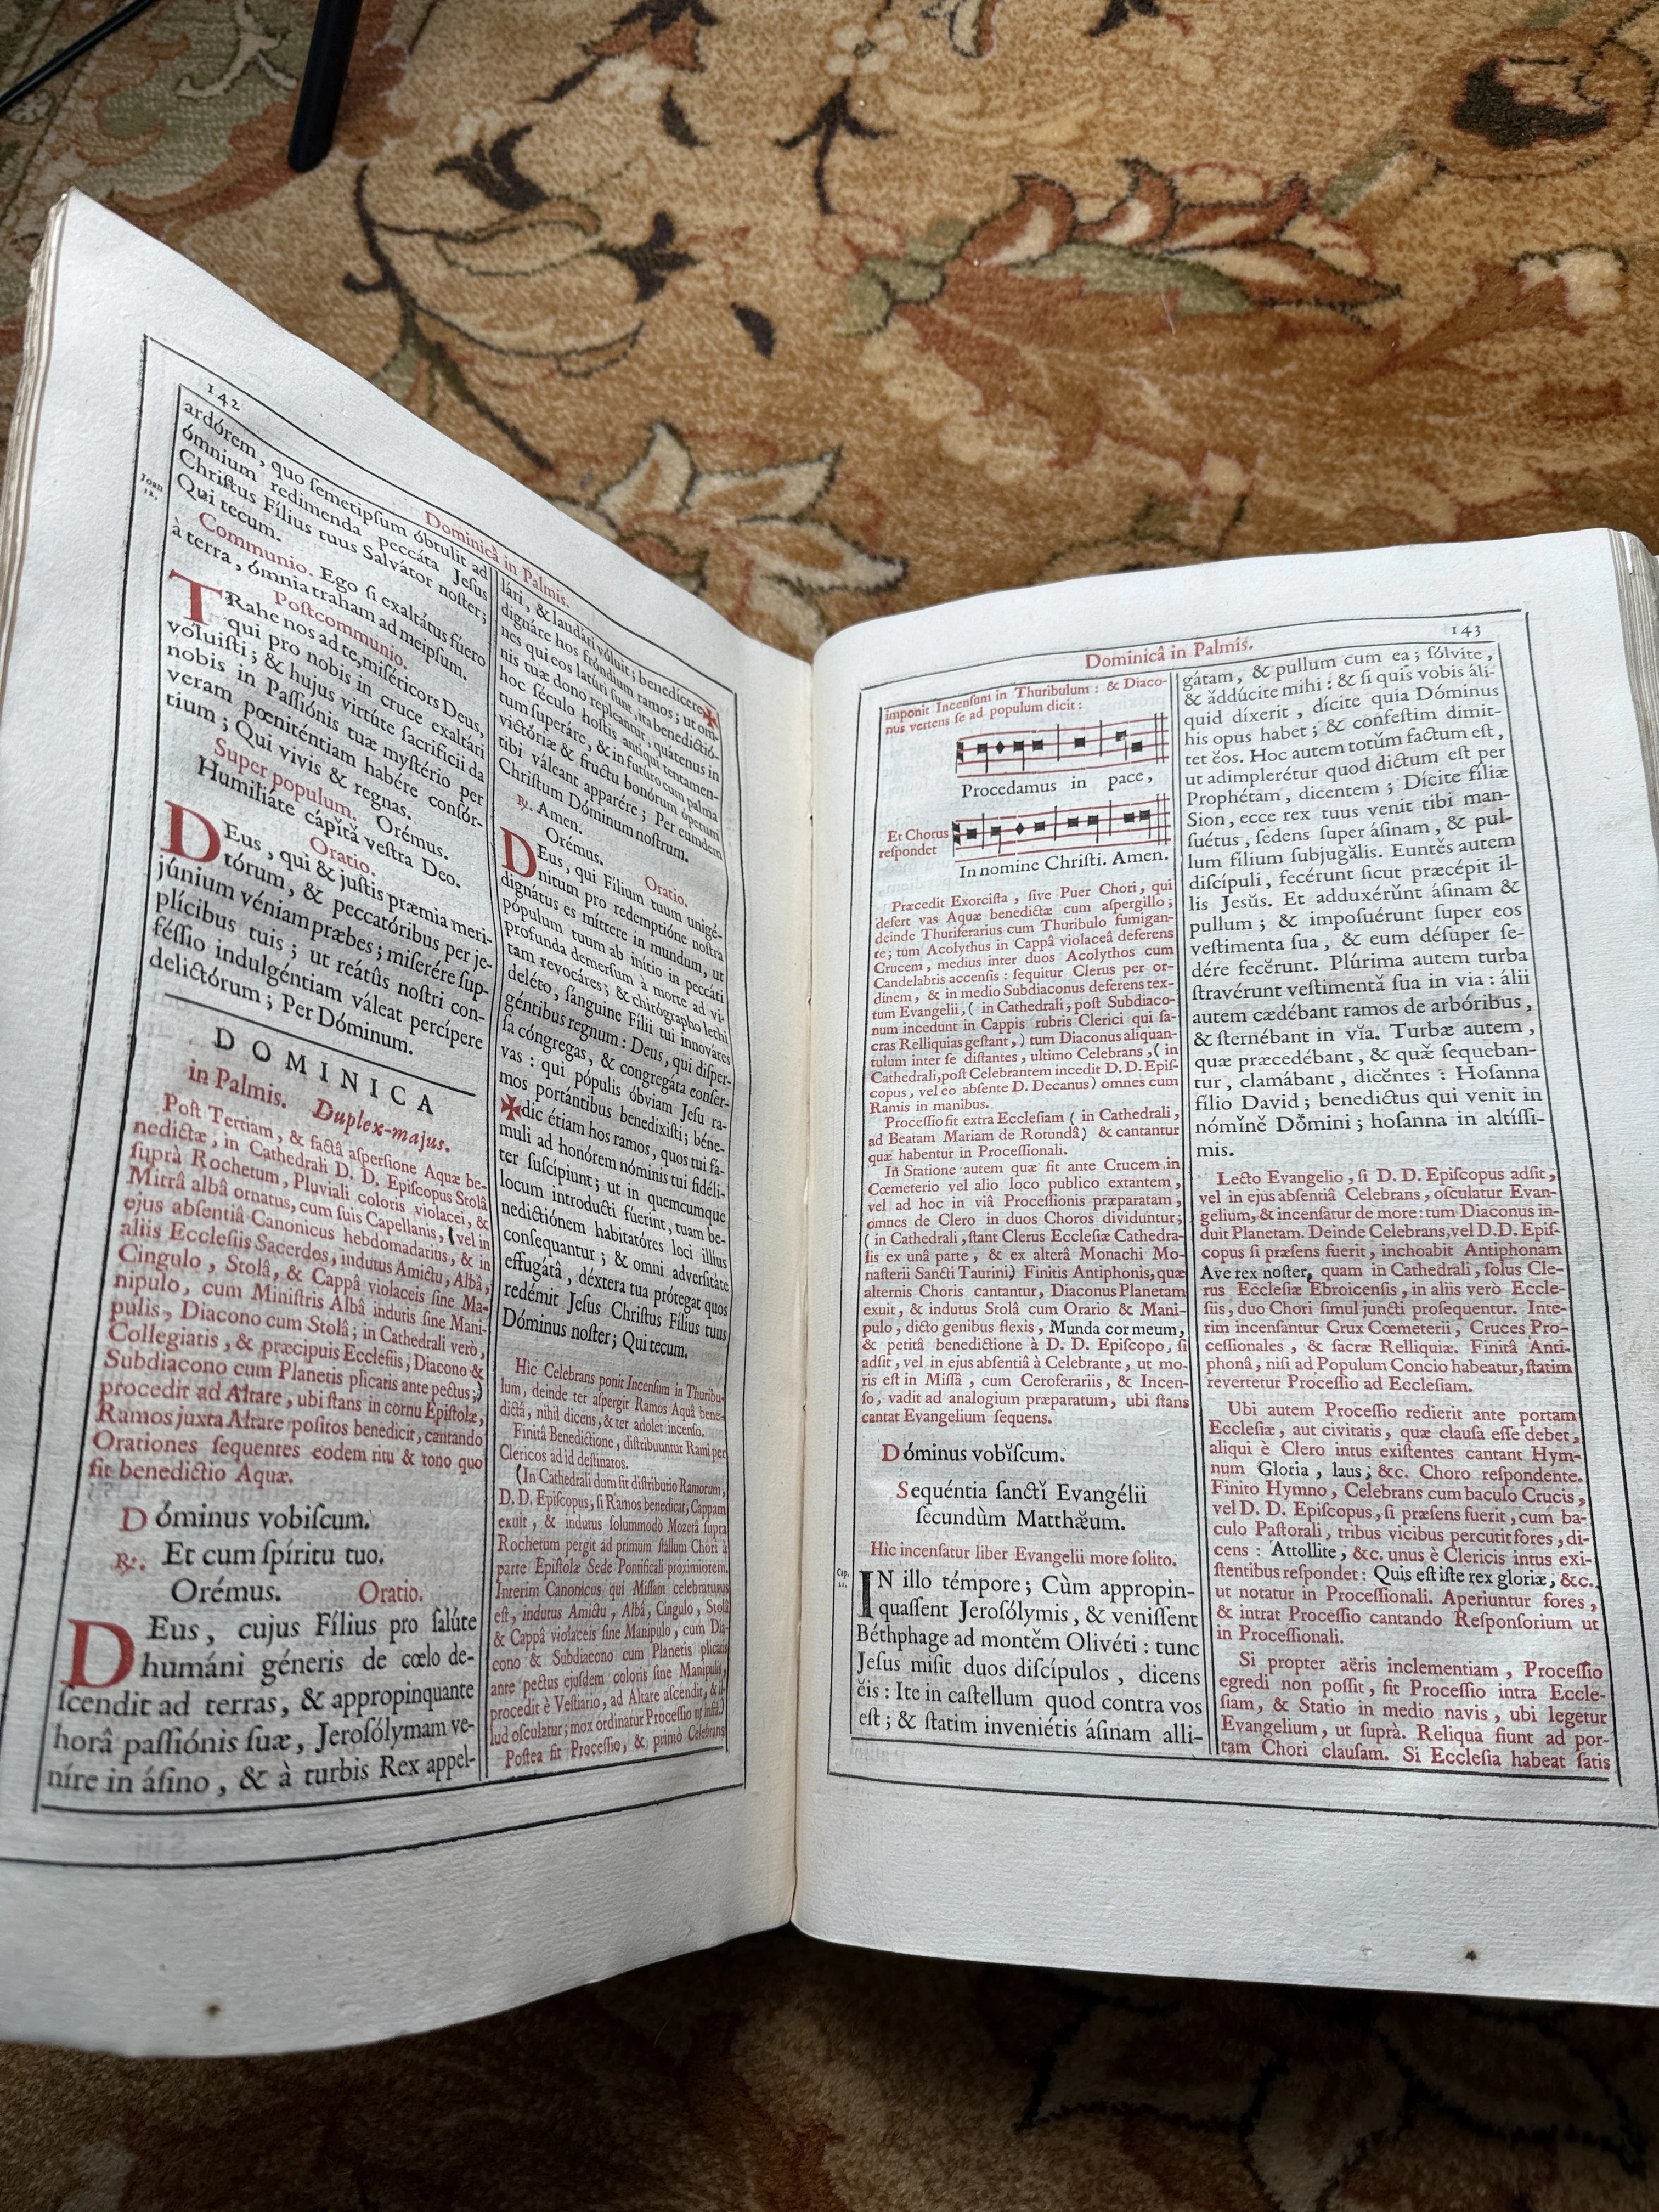 142
Dominicâ in Palmis.
ardórem, quo ſemetipſum óbtulit ad
ómnium redimenda peccáta Jeſus
Chriſtus Fílius tuus Salvátor noſter;
Qui tecum.
Joan
12.
Communio. Ego ſi exaltátus fúero
à terra, ómnia traham ad meipſum.
Poſtcommunio.
TRahe nos ad te, miſéricors Deus,
qui pro nobis in cruce exaltári
voluiſti; & hujus virtúte ſacrificii da
nobis in Paſſiónis tuæ myſtério per
veram pœniténtiam habére conſór-
tium; Qui vivis & regnas.
Super populum. Orémus.
Humiliáte cápita veſtra Deo.
Oratio.
DEus, qui & juſtis præmia meri-
tórum, & peccatóribus per je-
júnium véniam præbes; miſerére ſup-
plícibus tuis; ut reátûs noſtri con-
féſſio indulgéntiam váleat percípere
delictórum; Per Dóminum.
DOMINICA
in Palmis. Duplex-majus.
Poſt Tertiam, & factâ aſperſione Aquæ be-
nedictæ, in Cathedrali D. D. Epiſcopus Stolâ
ſuprà Rochetum, Pluviali coloris violacei, &
Mitrâ albâ ornatus, cum ſuis Capellanis, (vel in
ejus abſentiâ Canonicus hebdomadarius, & in
aliis Eccleſiis Sacerdos, indutus Amictu, Albâ,
Cingulo, Stolâ, & Cappâ violaceis ſine Ma-
nipulo, cum Miniſtris Albâ indutis ſine Mani-
pulis, Diacono cum Stolâ; in Cathedrali verò,
Collegiatis, & præcipuis Eccleſiis, Diacono &
Subdiacono cum Planetis plicatis ante pectus;)
procedit ad Altare, ubi ſtans in cornu Epiſtolæ,
Ramos juxta Altare poſitos benedicit, cantando
Orationes ſequentes eodem ritu & tono quo
fit benedictio Aquæ.
Dóminus vobiſcum.
℟. Et cum ſpíritu tuo.
Orémus. Oratio.
DEus, cujus Fílius pro ſalúte
humáni géneris de cœlo de-
ſcendit ad terras, & appropinquante
horâ paſſiónis ſuæ, Jeroſólymam ve-
níre in áſino, & à turbis Rex appel-
lári, & laudári vóluit; benedícere ✠
dignáre hos fróndium ramos; ut om-
nes qui eos latúri ſunt, ita benedictió-
nis tuæ dono repleantur, quátenus in
hoc ſéculo hoſtis antíqui tentamen-
tum ſuperáre, & in futúro cum palma
victóriæ & fructu bonórum óperum
tibi váleant apparére; Per eumdem
Chriſtum Dóminum noſtrum.
℟. Amen.
Orémus. Oratio.
DEus, qui Fílium tuum unigé-
nitum pro redemptióne noſtra
dignátus es míttere in mundum, ut
pópulum tuum ab inítio in peccáti
profunda demerſum à morte ad vi-
tam revocáres; & chirógrapho lethi
deléto, ſánguine Fílii tui innováres
géntibus regnum: Deus, qui diſper-
ſa cóngregas, & congregáta conſer-
vas: qui pópulis óbviam Jeſu ra-
mos portántibus benedixiſti; béne-
✠dic étiam hos ramos, quos tui fá-
muli ad honórem nóminis tui fidéli-
ter ſuſcípiunt; ut in quemcumque
locum introducti fúerint, tuam be-
nedictiónem habitatóres loci illius
conſequantur; & omni adverſitáte
effugátâ, déxtera tua prótegat quos
redémit Jeſus Chriſtus Fílius tuus
Dóminus noſter; Qui tecum.
Hic Celebrans ponit Incenſum in Thuribu-
lum, deinde ter aſpergit Ramos Aquâ bene-
dictâ, nihil diçens, & ter adolet incenſo.
Finitâ Benedictione, diſtribuuntur Rami per
Clericos ad id deſtinatos.
(In Cathedrali dum fit diſtributio Ramorum,
D. D. Epiſcopus, ſi Ramos benedicat, Cappam
exuit, & indutus ſolummodò Mozetâ ſupra
Rochetum pergit ad primum ſtallum Chori à
parte Epiſtolæ Sede Pontificali proximiorem.
Interim Canonicus qui Miſſam celebraturus
eſt, indutus Amictu, Albâ, Cingulo, Stolâ
& Cappâ violaceis ſine Manipulo, cum Dia-
cono & Subdiacono cum Planetis plicatis
ante pectus ejuſdem coloris ſine Manipulis,
procedit è Veſtiario, ad Altare aſcendit, & il-
lud oſculatur; mox ordinatur Proceſſio ut infrà.)
Poſtea fit Proceſſio, & primò Celebrans
143
Dominicâ in Palmis.
imponit Incenſum in Thuribulum: & Diaco-
nus vertens ſe ad populum dicit:
Procedamus in pace,
Et Chorus
reſpondet
In nomine Chriſti. Amen.
Præcedit Exorciſta, ſive Puer Chori, qui
defert vas Aquæ benedictæ cum aſpergillo;
deinde Thuriferarius cum Thuribulo fumigan-
te; tum Acolythus in Cappâ violaceâ deferens
Crucem, medius inter duos Acolythos cum
Candelabris accenſis: ſequitur Clerus per or-
dinem, & in medio Subdiaconus deferens tex-
tum Evangelii, (in Cathedrali, poſt Subdiaco-
num incedunt in Cappis rubris Clerici qui ſa-
cras Relliquias geſtant,) tum Diaconus aliquan-
tulum inter ſe diſtantes, ultimo Celebrans, (in
Cathedrali, poſt Celebrantem incedit D. D. Epiſ-
copus, vel eo abſente D. Decanus) omnes cum
Ramis in manibus.
Proceſſio fit extra Eccleſiam (in Cathedrali,
ad Beatam Mariam de Rotundâ) & cantantur
quæ habentur in Proceſſionali.
In Statione autem quæ fit ante Crucem in
Cœmeterio vel alio loco publico extantem,
vel ad hoc in viâ Proceſſionis præparatam,
omnes de Clero in duos Choros dividuntur;
(in Cathedrali, ſtant Clerus Eccleſiæ Cathedra-
lis ex unâ parte, & ex alterâ Monachi Mo-
naſterii Sancti Taurini) Finitis Antiphonis, quæ
alternis Choris cantantur, Diaconus Planetam
exuit, & indutus Stolâ cum Orario & Mani-
pulo, dicto genibus flexis, Munda cor meum,
& petitâ benedictione à D. D. Epiſcopo, ſi
adſit, vel in ejus abſentiâ à Celebrante, ut mo-
ris eſt in Miſſâ, cum Ceroferariis, & Incen-
ſo, vadit ad analogium præparatum, ubi ſtans
cantat Evangelium ſequens.
Dóminus vobĭſcum.
Sequéntia ſanctĭ Evangélii
ſecundùm Matthæ̆um.
Hìc incenſatur liber Evangelii more ſolito.
Cap.
21.
IN illo témpore; Cùm appropin-
quaſſent Jeroſólymis, & veniſſent
Béthphage ad montĕm Olivéti: tunc
Jeſus miſit duos diſcípulos, dicens
ĕis: Ite in caſtellum quod contra vos
eſt; & ſtatim inveniétis áſinam alli-
gátam, & pullum cum ea; ſólvite,
& ăddúcite mihi: & ſi quis vobis áli-
quid díxerit, dícite quia Dóminus
his opus habet; & conféſtim dimit-
tet ĕos. Hoc autem totŭm factum eſt,
ut adimplerétur quod dictum eſt per
Prophétam, dicentem; Dícite fíliæ
Sion, ecce rex tuus venit tibi man-
ſuétus, ſedens ſuper áſinam, & pul-
lum filium ſubjugălis. Euntĕs autem
diſcípuli, fecérunt ſicut præcépit il-
lis Jesŭs. Et adduxérŭnt áſinam &
pullum; & impoſuérunt ſuper eos
veſtimenta ſua, & eum déſuper ſe-
dére fecĕrunt. Plúrima autem turba
ſtravérunt veſtimentă ſua in via: álii
autem cædébant ramos de arbóribus,
& ſternébant in vĭa. Turbæ autem,
quæ præcedébant, & quæ̆ ſequeban-
tur, clamábant, dicĕntes: Hoſanna
filio David; benedictus qui venit in
nómĭnĕ Dŏmini; hoſanna in altíſſi-
mis.
Lecto Evangelio, ſi D. D. Epiſcopus adſit,
vel in ejus abſentiâ Celebrans, oſculatur Evan-
gelium, & incenſatur de more: tum Diaconus in-
duit Planetam. Deinde Celebrans, vel D. D. Epiſ-
copus ſi præſens fuerit, inchoabit Antiphonam
Ave rex noſter, quam in Cathedrali, ſolus Cle-
rus Eccleſiæ Ebroicenſis, in aliis verò Eccle-
ſiis, duo Chori ſimul juncti proſequentur. Inte-
rim incenſantur Crux Cœmeterii, Cruces Pro-
ceſſionales, & ſacræ Relliquiæ. Finitâ Anti-
phonâ, niſi ad Populum Concio habeatur, ſtatim
revertetur Proceſſio ad Eccleſiam.
Ubi autem Proceſſio redierit ante portam
Eccleſiæ, aut civitatis, quæ clauſa eſſe debet,
aliqui è Clero intus exiſtentes cantant Hym-
num Gloria, laus; &c. Choro reſpondente.
Finito Hymno, Celebrans cum baculo Crucis,
vel D. D. Epiſcopus, ſi præſens fuerit, cum ba-
culo Paſtorali, tribus vicibus percutit fores, di-
cens: Attollite, &c. unus è Clericis intus exi-
ſtentibus reſpondet: Quis eſt iſte rex gloriæ, &c.
ut notatur in Proceſſionali. Aperiuntur fores,
& intrat Proceſſio cantando Reſponſorium ut
in Proceſſionali.
Si propter aëris inclementiam, Proceſſio
egredi non poſſit, fit Proceſſio intra Eccle-
ſiam, & Statio in medio navis, ubi legetur
Evangelium, ut ſuprà. Reliqua fiunt ad por-
tam Chori clauſam. Si Eccleſia habeat ſatis